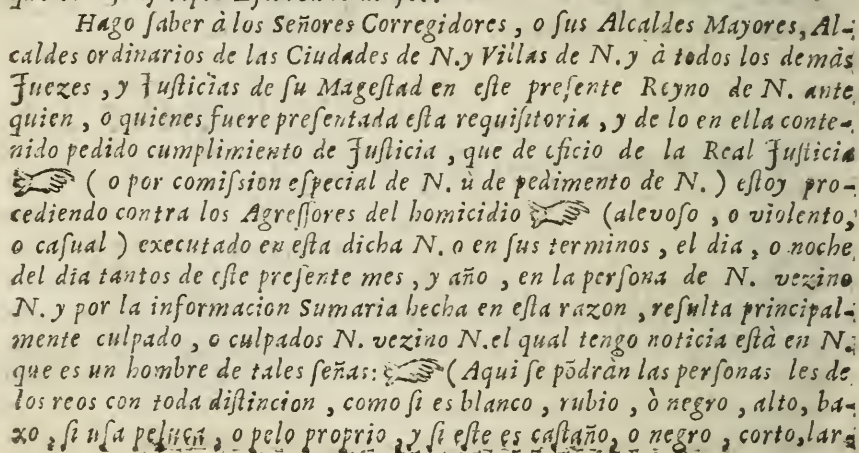 Hago ſaber à los Señores Corregidores, o ſus Alcaldes Mayores, Al-
caldes ordinarios de las Ciudades de N. y Villas de N. y à todos los demás
Juezes, y Juſticias de ſu Mageſtad en eſte preſente Reyno de N. ante
quien, o quienes fuere preſentada eſta requiſitoria, y de lo en ella conte-
nido pedido cumplimiento de Juſticia, que de oficio de la Real Juſticia
☞ ( o por comiſsion eſpecial de N. ù de pedimento de N. ) eſtoy pro-
cediendo contra los Agreſſores del homicidio ☞ (alevoſo, o violento,
o caſual ) executado en eſta dicha N. o en ſus terminos, el dia, o noche
del dia tantos de eſte preſente mes, y año, en la perſona de N. vezino
N. y por la informacion Sumaria hecha en eſta razon, reſulta principal-
mente culpado, o culpados N. vezino N. el qual tengo noticia eſtà en N.
que es un hombre de tales ſeñas: ☞ (Aqui ſe põdràn las perſonas les de
los reos con toda diſtincion, como ſi es blanco, rubio, ò negro, alto, ba-
xo, ſi uſa peluca, o pelo proprio, y ſi eſte es caſtaño, o negro, corto, lar-